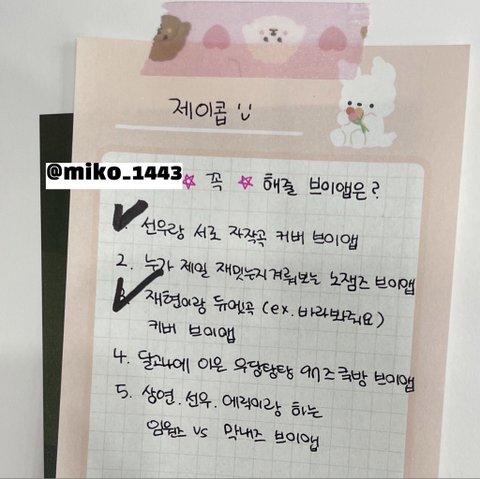 제이콥
@miko_1443
꼭 해줄 브이앱은?
1. 선우랑 서로 자작곡 커버 브이앱
2. 누가 제일 재밌는지 겨뤄보는 노잼즈 브이앱
3. 재현이랑 듀엣곡 (ex. 바라봐줘요)
커버 브이앱
4. 달고나에 이은 우당탕탕 97즈 쿡방 브이앱
5. 상연. 선우. 에릭이랑 하는
임원즈 vs 막내즈 브이앱